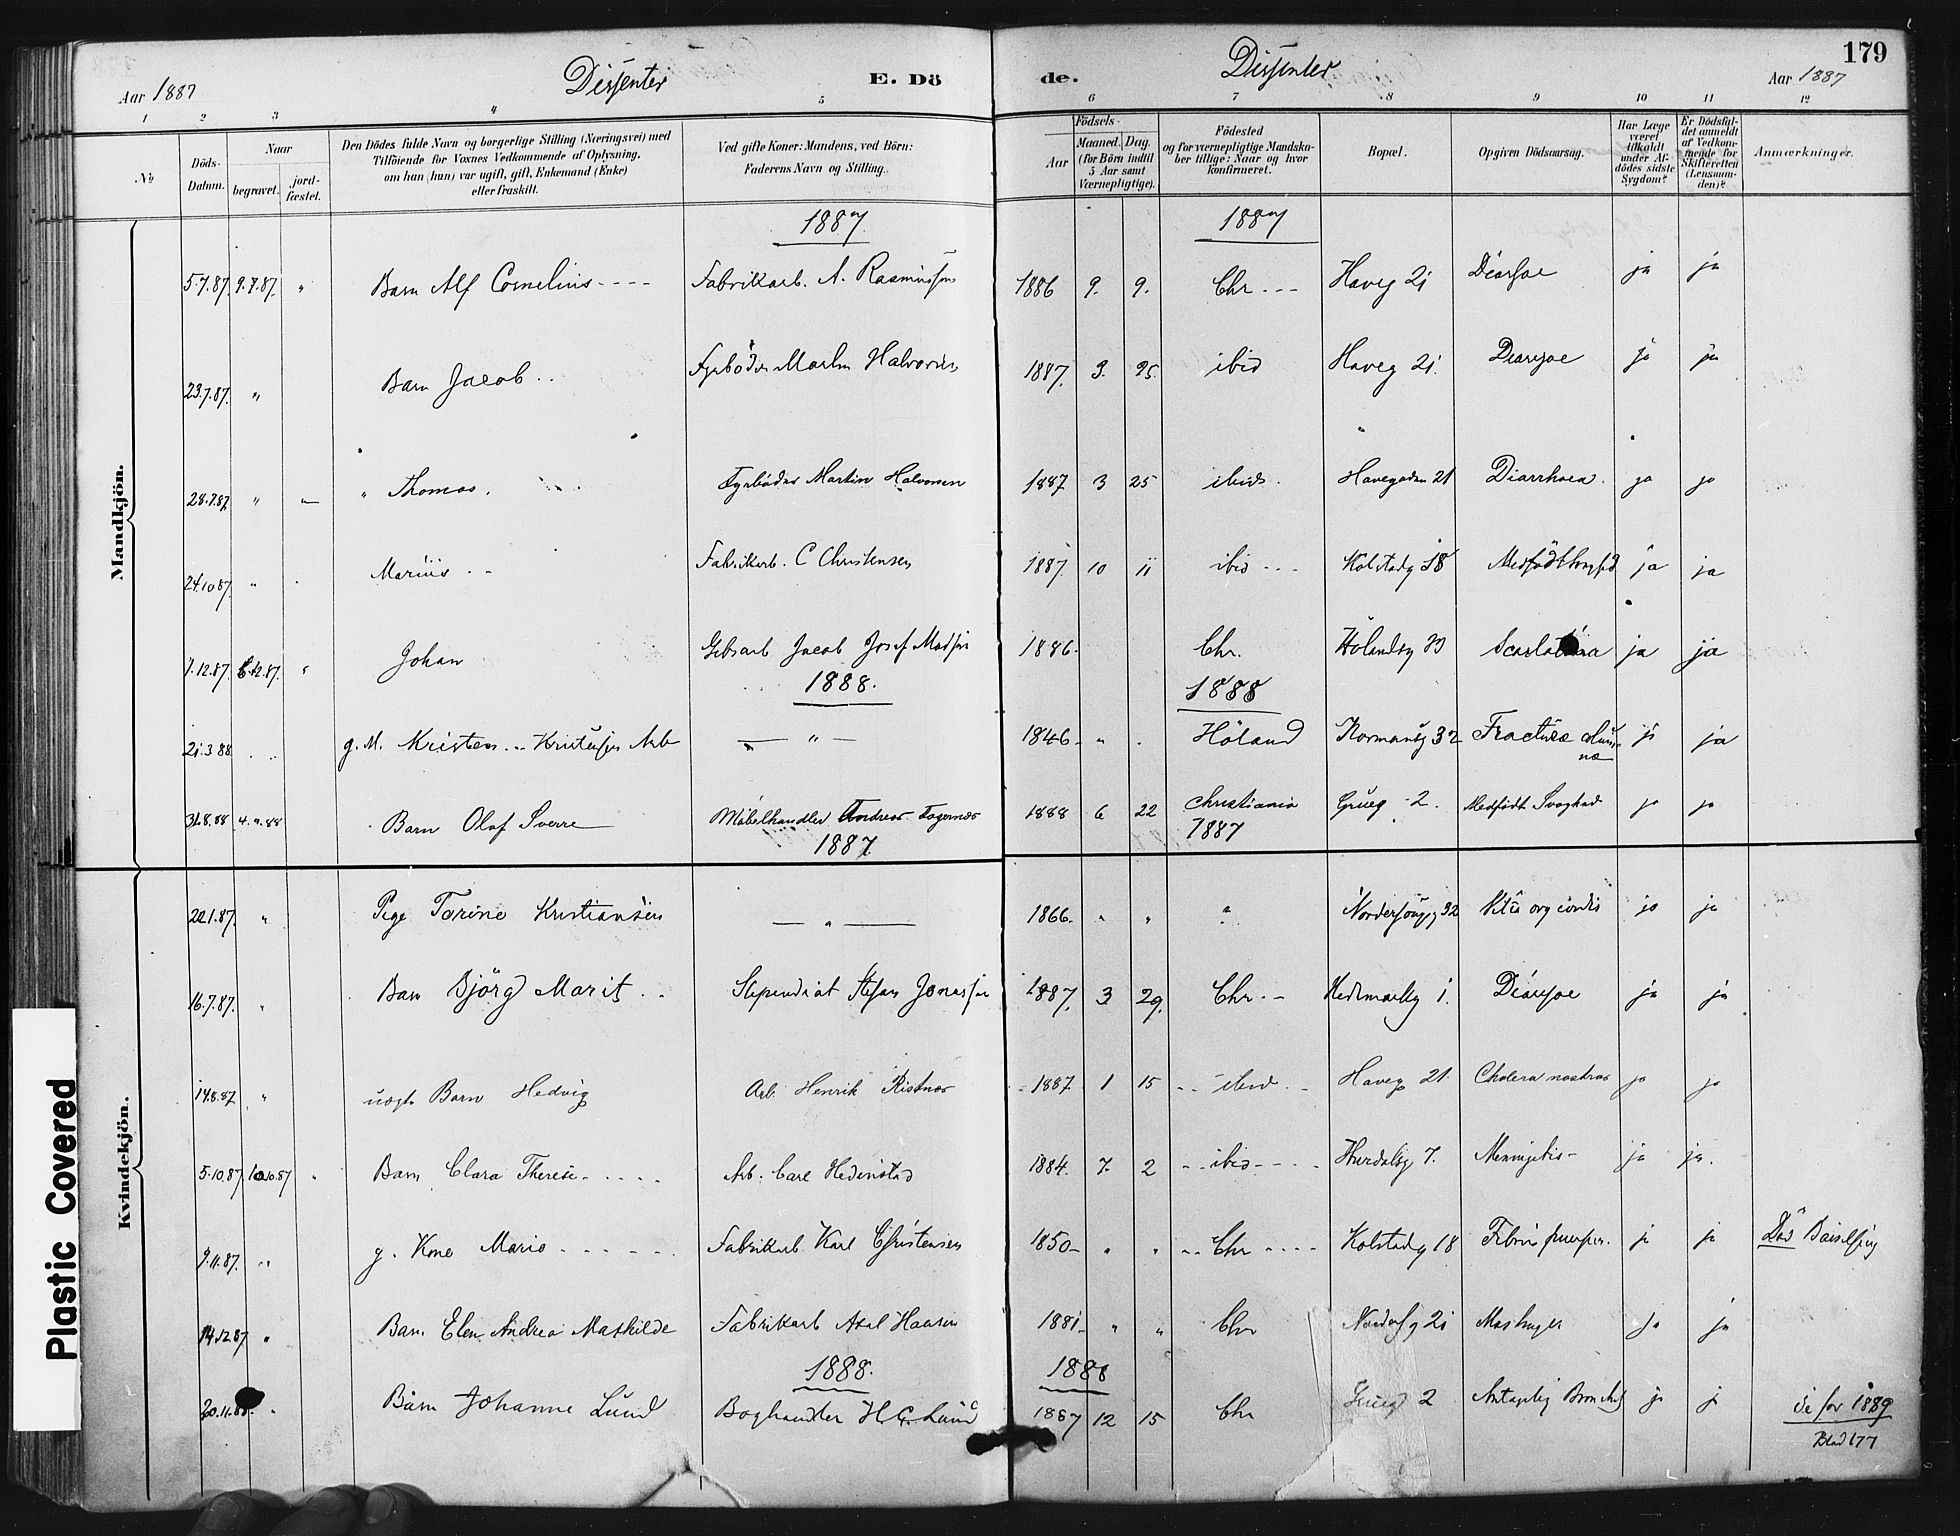 Aar 1887 Dissenter E. Dö de. Dissenter Aar 1887 179
1 2 3 4 5 6 7 8 9 10 11 12
No Döds-Datum. Naar begravet. jord-fæstet. Den Dödes fulde Navn og borgerlige Stilling (Næringsvei) med Tilföiende for Voxnes Vedkommende af Oplysning, om han (hun) var ugift, gift, Enkemand (Enke) eller fraskilt. Ved gifte Koner: Mandens, ved Börn: Faderens Navn og Stilling. Aar Födsels- Maaned. Dag. (for Börn indtil 5 Aar samt Værnepligtige). Födested og for værnepligtige Mandska-ber tillige: Naar og hvor konfirmeret. Bopæl. Opgiven Dödsaarsag. Har Læge været tilkaldt under Af-dödes sidste Sygdom? Er Dödsfal-det anmeldt af Vedkom-mende for Skifteretten (Lensman-den)? Anmærkninger.
Mandkjön.
1887. 1887
5.7.87. 9.7.87. " Barn Alf Cornelius Fabrikarb. A. Rasmussen 1886 9. 9. Chr. Haveg 21 Diarrhoe ja ja
23.7.87. " Barn Jacob Fyrböder Martin Halvorsen 1887. 3. 25. ibid Haveg 21. Diarrhoe ja ja
28.7.87 " — " Thomas. Fyrböder Martin Halvorsen 1887 3 25 ibid. Havegaden 21 Diarrhoea. ja ja
24.10.87. " Marius Fabrikarb. C Christensen 1887. 10 11 ibid Kolstadg 18 Medfödt ja ja
1.12.87. 6.12.87. " Johan Gibsarb Jacob Josef Madsen 1886. Chr. Hölandsg Scarlatina ja ja
1888. 1888
21.3.88 g. M. Kristen Kristensen Arb — " — 1846 " . Höland Normansg 32 Fractura columnæ ja ja
31.8.88 4.9.88 Barn Olaf Sverre Möbelhandler Andreas Fagernæs 1888 6 22 Christiania Grüeg 2. Medfödt Svaghed ja ja
1887. 1887
Kvindekjön.
22.1.87. " Pige Torine Kristiansen — " — 1866. " " " 32 Vitium org cordis ja ja
16.7.87. " Barn Björg Marit Stipendiat Stefan Jonassen 1887. 3 29. Chr. Hedemarksg 1. Diarrhoe ja ja
14.8.87 " uægte Barn Hedvig Arb. Henrik Ristnæs 1887. 1 15 ibid Haveg 21. Cholera nostras ja ja
5.10.87. 10.10.87 " Barn Clara Therese Arb. Carl Hedenstad 1884. 7. 2 ibid Hurdalsg 7. Meningitis ja ja.
9.11.87. " g. Kone Marie Fabrikarb Karl Christensen 1850 " " Chr Kolstadg 18 Febris puerper. ja ja Död
14.12.87 " Barn Elen Andrea Mathilde Fabrikarb Axel Hansen 1881 " " Chr 21 Mæslinger ja ja
1888. 1888
20.11.88. " Barn Johanne Lund Boghandler H C Lund 1887 12 15 Chr Grüeg 2 ja ja Se for 1889
Blad 177
Plastic Covered